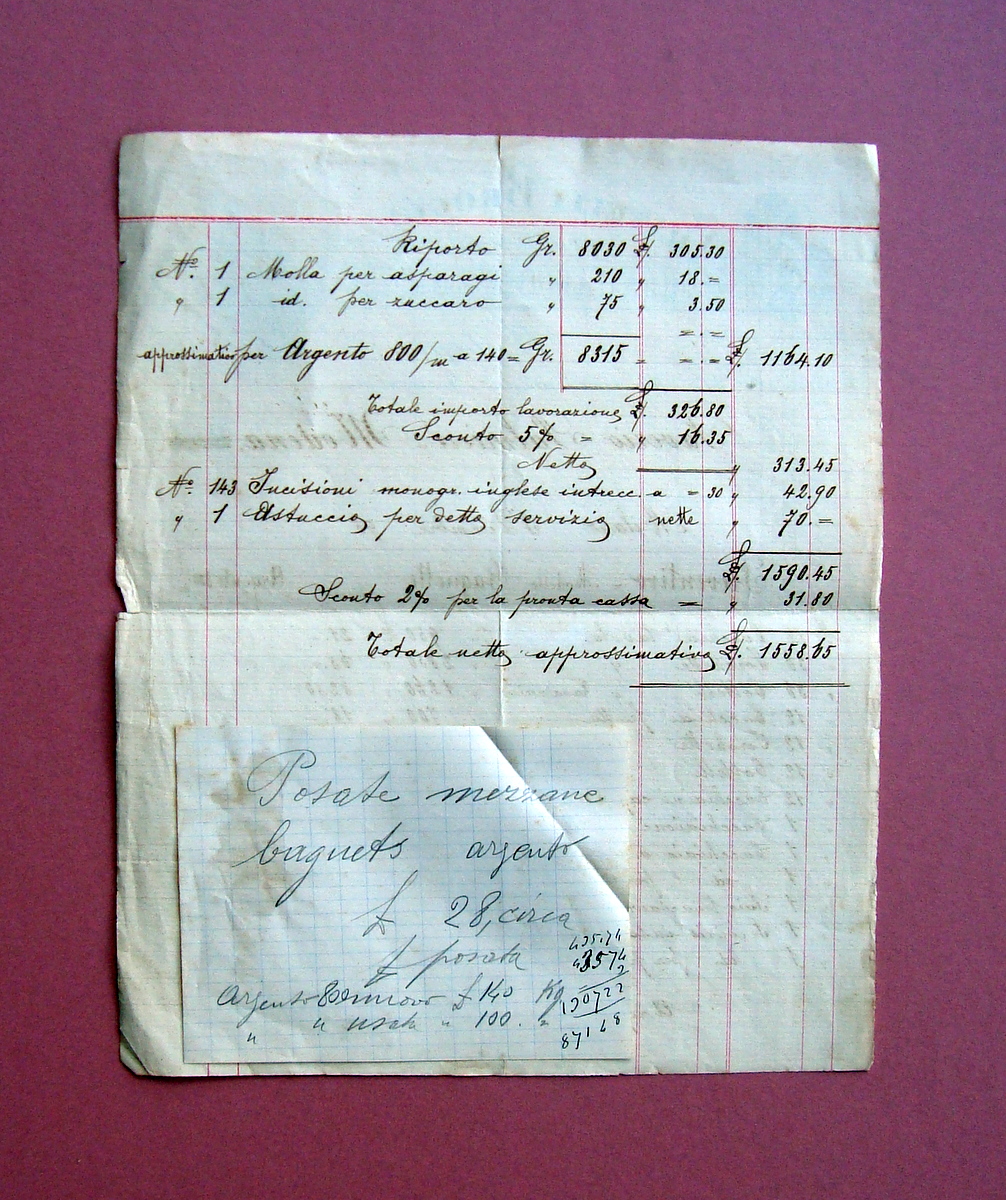 Riporto Gr. 8030 £. 305.30
No. 1 Molla per asparagi " 210 " 18.=
" 1 id. per zuccaro " 75 " 3.50
= . =
approssimativo per Argento 800/m a 140= Gr. 8315 = = . = £. 1164.10
Totale importo lavorazione £. 326.80
Sconto 5% = " 16.35
Netto " 313.45
No. 143 Incisioni monogr. inglese intrecc. a = 30 " 42.90
" 1 Astuccio per detto servizio nette " 70.=
£. 1590.45
Sconto 2% per la pronta cassa = " 31.80
Totale netto approssimativo £. 1558.65
Posate mezzane
baguets argento
£ 28, circa
posata
43574
43574
2
130722
87148
Argento 800 nuovo £ 140 Kg
" " usato " 100. "